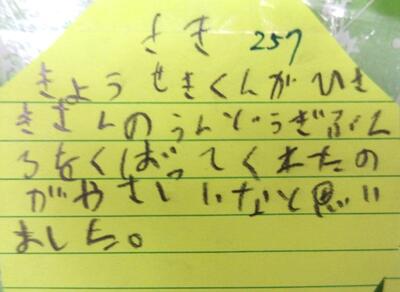 さき 257
きょうせきくんがひさ
きさんのうんどうぎぶく
ろをくばってくれたの
がやさしいなと思い
ました。